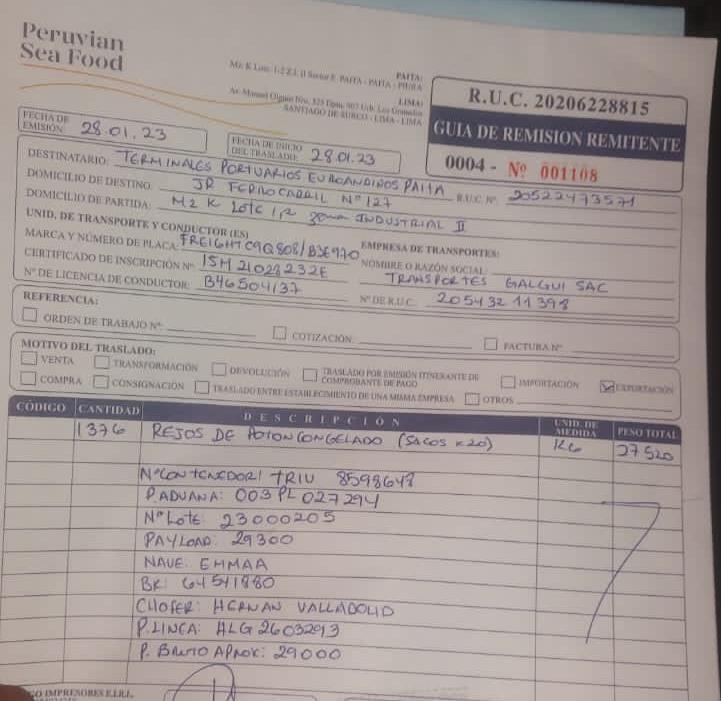 Peruvian
Sea Food
PAITA:
Mz. K Lote. 1-2 Z.I. II Sector E. PAITA - PAITA - PIURA
LIMA:
Av. Manuel Olguin Nro. 325 Dpto. 907 Urb. Los Granados
SANTIAGO DE SURCO - LIMA - LIMA
R.U.C. 20206228815
GUIA DE REMISION REMITENTE
0004 - Nº 001108
FECHA DE EMISIÓN: 28.01.23
FECHA DE INICIO DEL TRASLADO: 28.01.23
DESTINATARIO: TERMINALES PORTUARIOS EUROANDINOS PAITA
DOMICILIO DE DESTINO: JR FERROCARRIL Nº 127 R.U.C. Nº 20522473571
DOMICILIO DE PARTIDA: MZ K Lote 1,2 zona INDUSTRIAL II
UNID. DE TRANSPORTE Y CONDUCTOR (ES)
MARCA Y NÚMERO DE PLACA: FREIGHT C9Q808/B3E970 EMPRESA DE TRANSPORTES:
CERTIFICADO DE INSCRIPCIÓN Nº 15M21028232E NOMBRE O RAZÓN SOCIAL: TRANSPORTES GALGUI SAC
Nº DE LICENCIA DE CONDUCTOR: B46504137 Nº DE R.U.C. 20543211398
REFERENCIA:
ORDEN DE TRABAJO Nº: COTIZACIÓN: FACTURA Nº
MOTIVO DEL TRASLADO:
VENTA TRANSFORMACIÓN DEVOLUCIÓN TRASLADO POR EMISIÓN ITINERANTE DE COMPROBANTE DE PAGO IMPORTACIÓN EXPORTACIÓN
COMPRA CONSIGNACIÓN TRASLADO ENTRE ESTABLECIMIENTO DE UNA MISMA EMPRESA OTROS
CÓDIGO CANTIDAD DESCRIPCIÓN UNID. DE MEDIDA PESO TOTAL
1376 REJOS DE POTON CONGELADO (SACOS x 20) KG 27520
Nº CONTENEDOR: TRIU 8598648
P. ADUANA: 003PL027294
Nº Lote: 23000205
PAYLOAD: 29300
NAVE: EMMAA
BK: 64541880
CHOFER: HERNAN VALLADOLID
P. LINEA: HLG2603293
P. BRUTO APROX: 29000
GO IMPRESORES E.I.R.L.